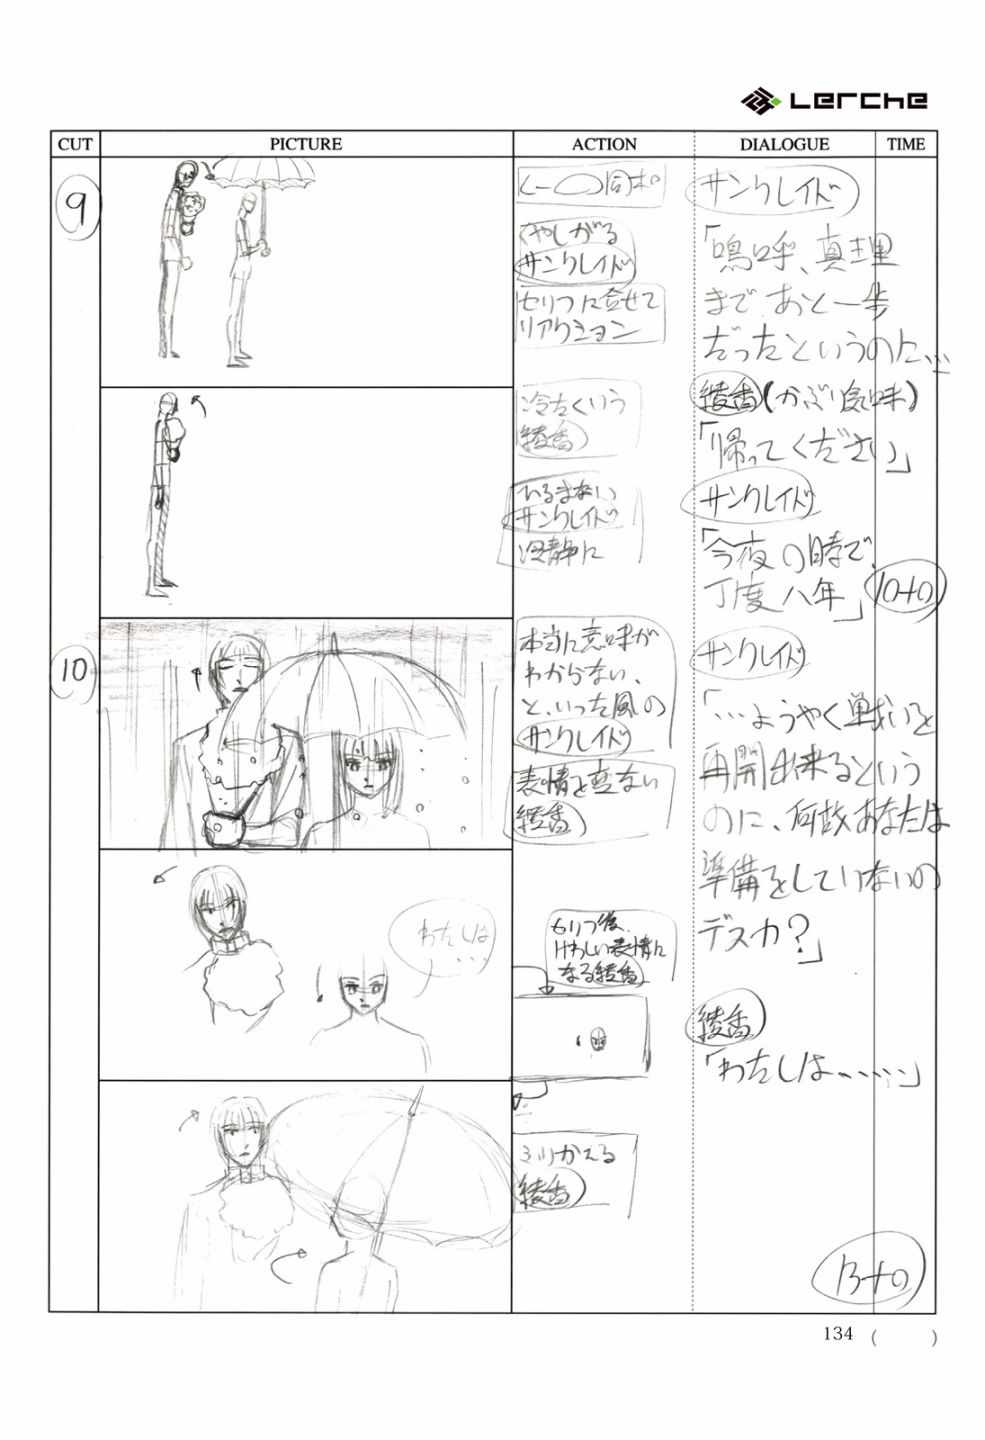 Lerche
CUT
PICTURE
ACTION
DIALOGUE
TIME
9
くやしがる
サンクレイド
セリフに合せて
リアクション
サンクレイド
「嗚呼、真理
まであと一歩
だったというのに…
冷たくいう
綾香
綾香(かぶり気味)
「帰ってください」
ひるまない
サンクレイド
冷静に
サンクレイド
「今夜の時で、
丁度八年」
10+0
10
本当に意味が
わからない、
と、いった風の
サンクレイド
表情を変ない
綾香
サンクレイド
「…ようやく戦いを
再開出来るという
のに、何故あなたは
準備をしていないの
デスカ?」
わたしは
…
セリフ後、
けわしい表情に
なる綾香
綾香
「わたしは、……」
ふりかえる
綾香
13+0
134 (  )